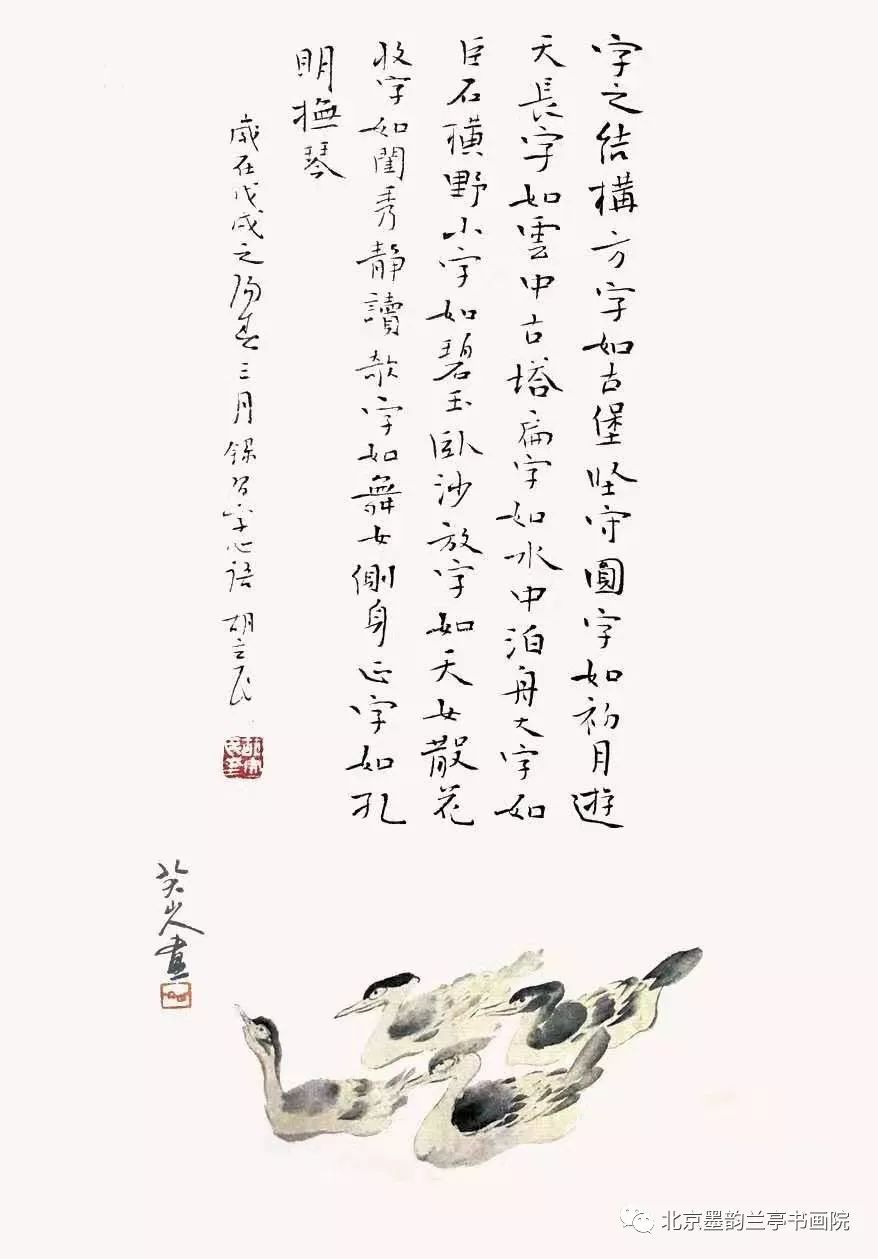 字之结構方字如古堡坚守圓字如初月遊
天長字如雲中古塔扁字如水中泊舟大字如
巨石横野小字如碧玉臥沙放字如天女散花
收字如閨秀静讀欹字如舞女側身正字如孔
明撫琴
歲在戊戌之陽春三月録習字心語 胡立民
八大山人畫
北京墨韵兰亭书画院